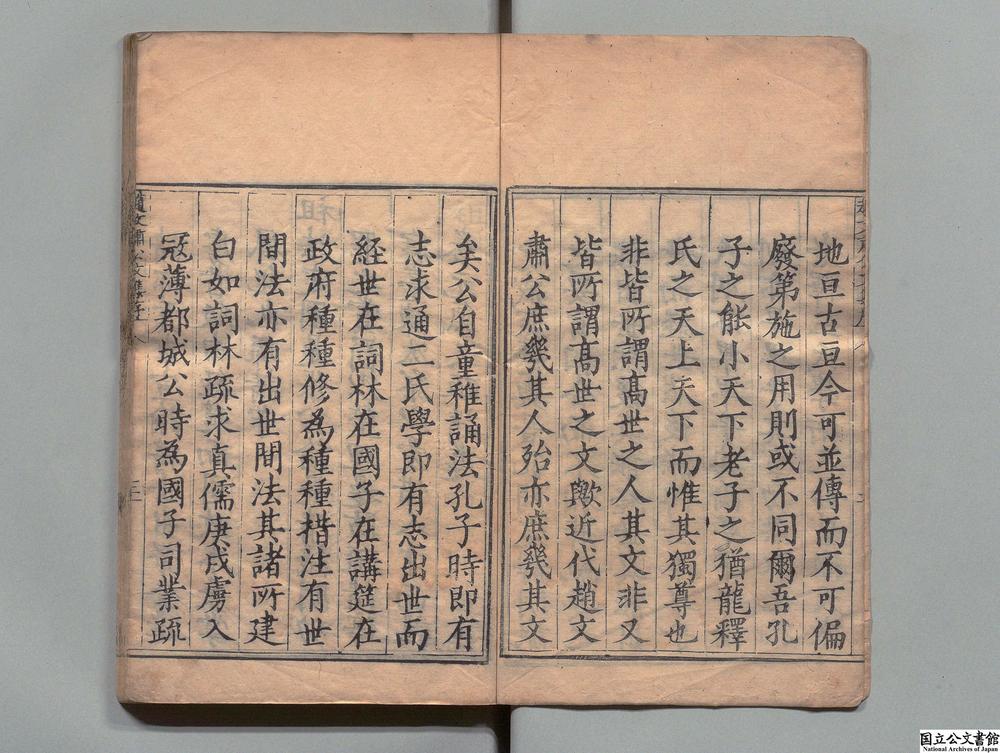 地亘古亘今可並傳而不可偏
廢第施之用則或不同爾吾孔
子之能小天下老子之猶龍釋
氏之天上天下而惟其獨尊也
非皆所謂高世之人其文非又
皆所謂高世之文歟近代趙文
肅公庶幾其人殆亦庶幾其文
矣公自童稚誦法孔子時即有
志求通二氏學即有志出世而
経世在詞林在國子在講筵在
政府種種修為種種措注有世
間法亦有出世間法其諸所建
白如詞林疏求真儒庚戌虜入
冦薄都城公時為國子司業疏
国立公文書館
National Archives of Japan